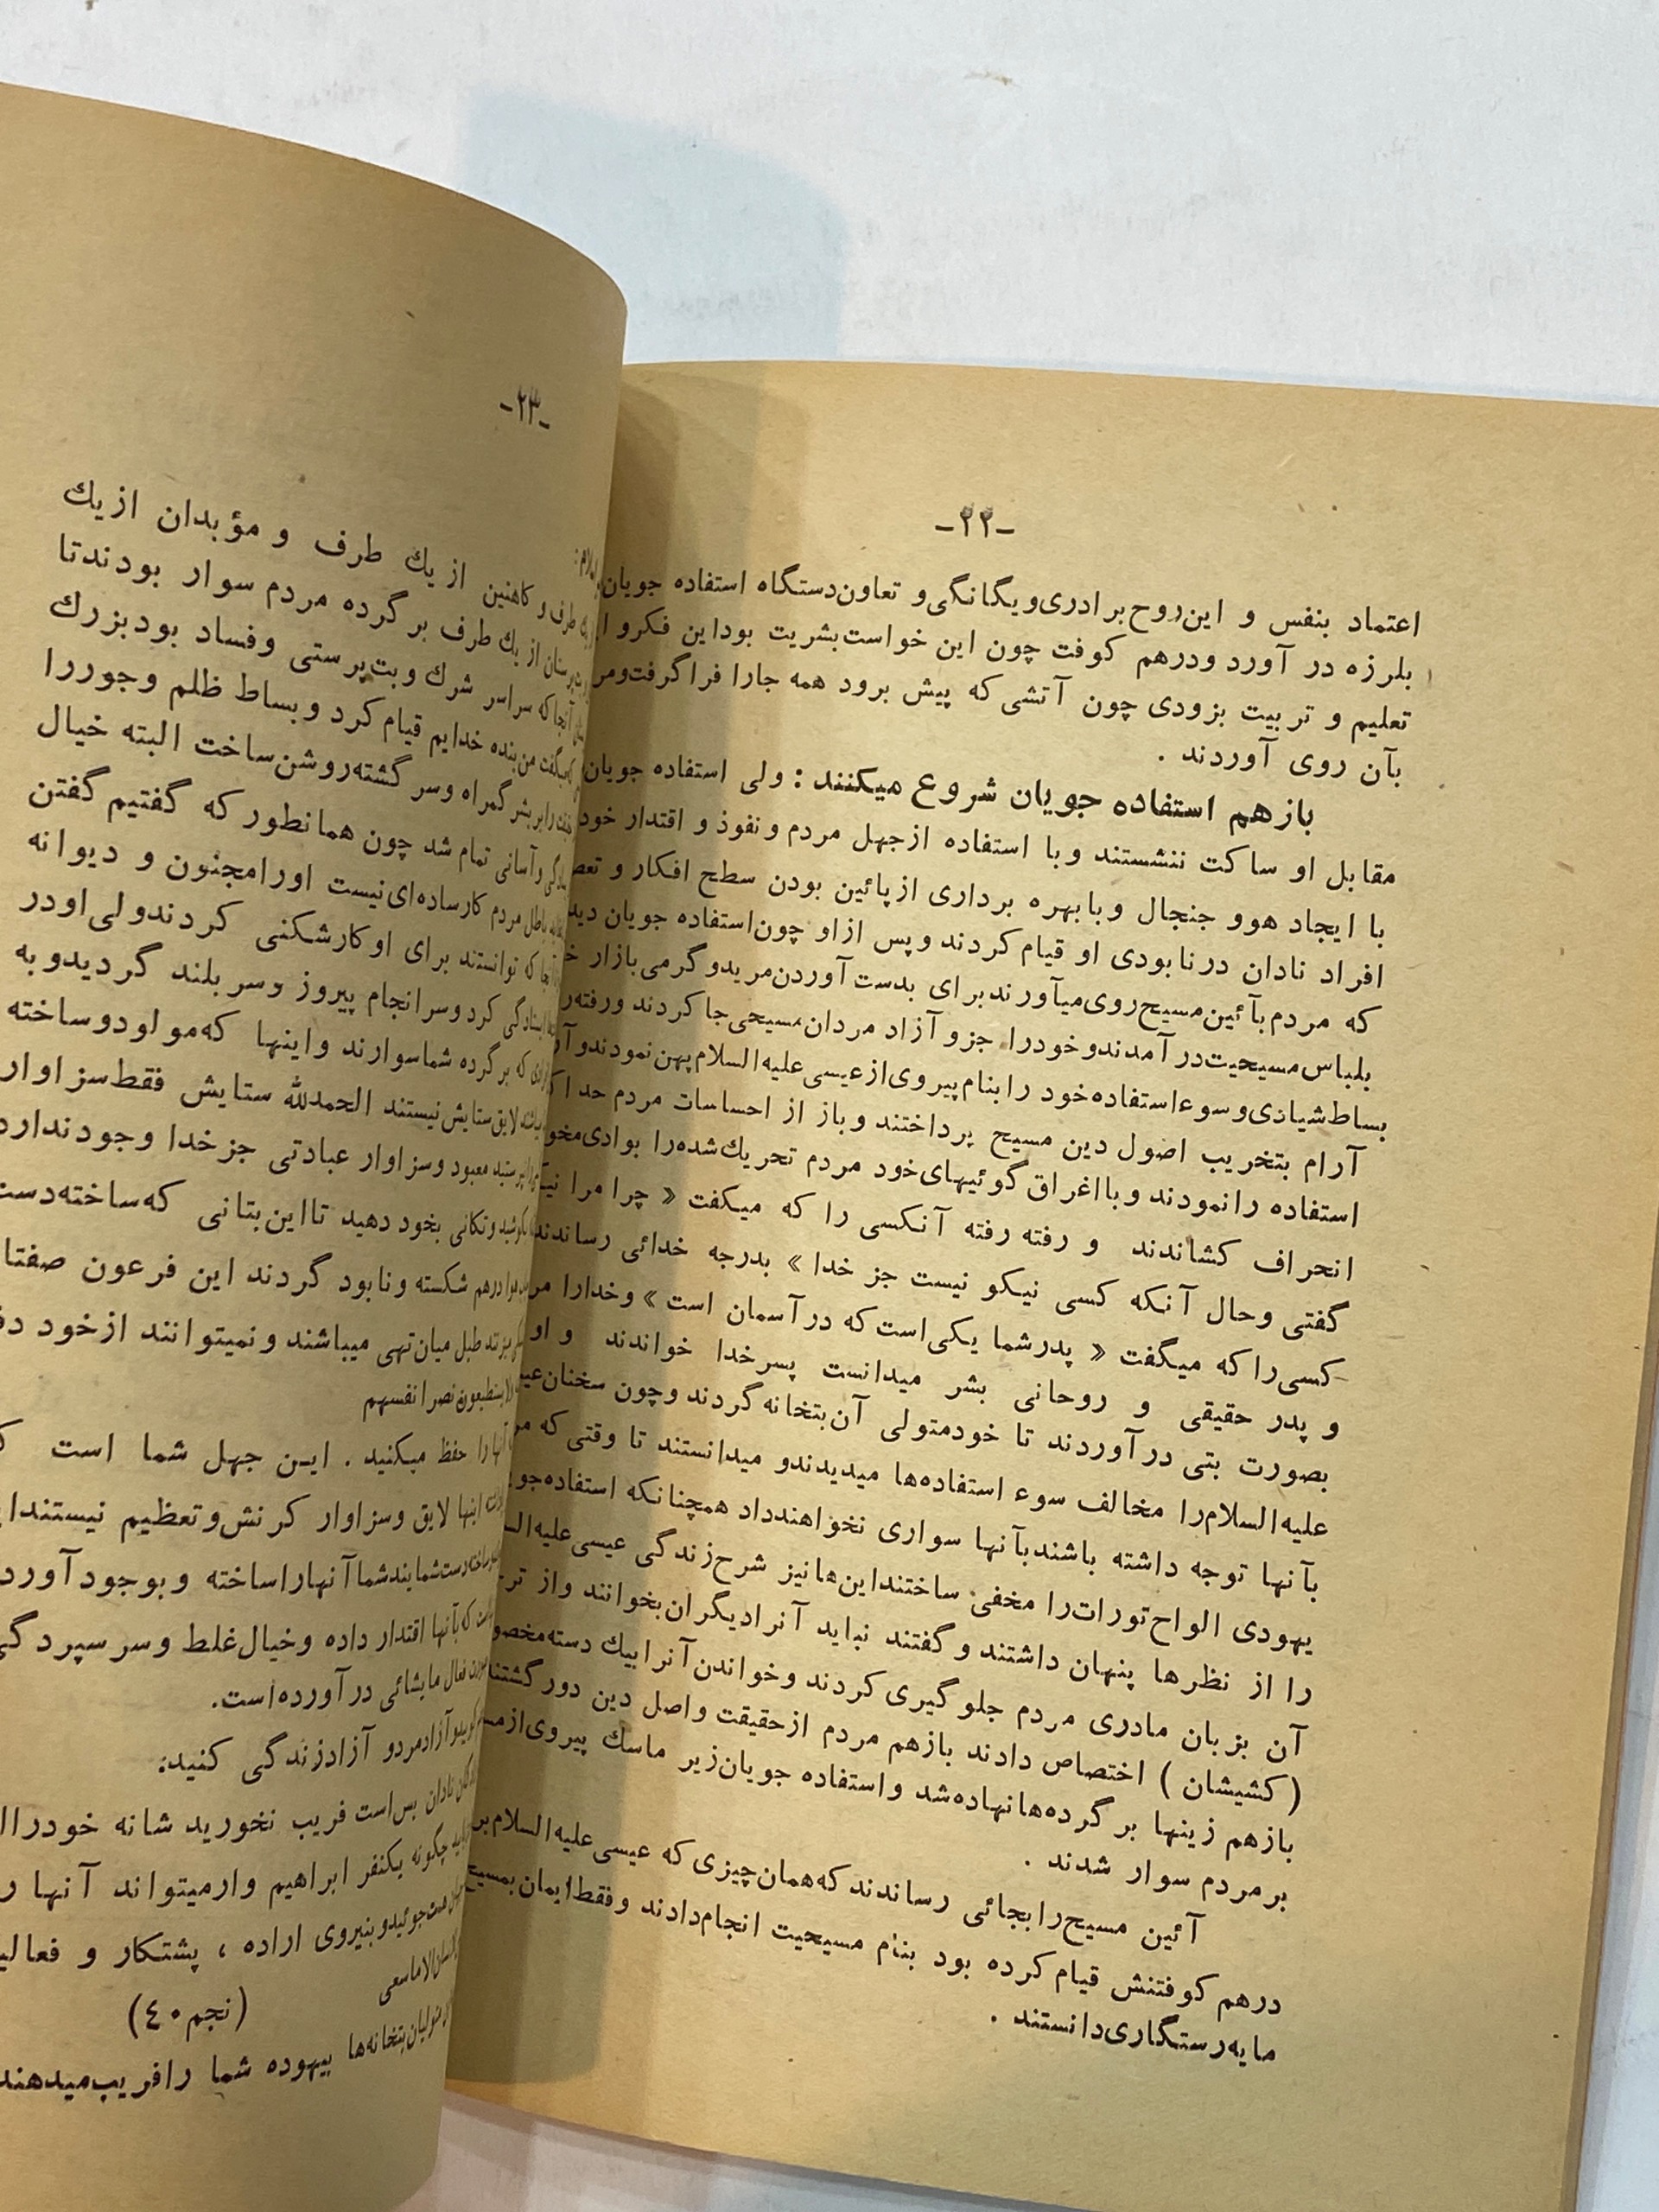 -۲۲-
اعتماد بنفس و این‌روح برادری‌و یگانگی‌و تعاون‌دستگاه استفاده جویان
بلرزه در آورد ودرهم کوفت چون این خواست‌بشریت بوداین فکرو
تعلیم و تربیت بزودی چون آتشی‌که پیش برود همه جارا فراگرفت‌ومر
بآن روی آوردند .
بازهم استفاده جویان شروع میکنند : ولی استفاده جویان
مقابل او ساکت ننشستند وبا استفاده ازجهل مردم ونفوذ و اقتدار خود
با ایجاد هوو جنجال وبابهره برداری ازپائین بودن سطح افکار و
افراد نادان درنابودی او قیام کردند وپس ازاو چون‌استفاده جویان
که مردم‌بآئین‌مسیح‌روی‌میآورندبرای بدست آوردن‌مریدوگرمی‌بازار
بلباس‌مسیحیت‌در آمدندوخودرا جزو آزاد مردان‌مسیحی‌جاکردند ورفته‌ر
بساط‌شیادی‌وسوءاستفاده‌خود رابنام‌پیروی‌ازعیسی‌علیه‌السلام‌پهن‌نمودندو
آرام بتخریب اصول دین مسیح پرداختند وباز از احساسات مردم حدا
استفاده رانمودند وبااغراق‌گوئیهای‌خود مردم تحریك‌شده‌را بوادی‌مخو
انحراف کشاندند و رفته رفته آنکسی را که میگفت « چرا مرا نیک
گفتی وحال آنکه کسی نیکو نیست جز خدا » بدرجه خدائی رساندند
کسی‌راکه میگفت « پدرشما یکی‌است‌که درآسمان است » وخدارا مر
و پدر حقیقی و روحانی بشر میدانست پسرخدا خواندند و او
بصورت بتی درآوردند تا خودمتولی آن‌بتخانه‌گردند وچون سخنان‌عی
علیه‌السلام‌را مخالف سوء استفاده‌ها میدیدندو میدانستند تا وقتی‌که مر
بآنها توجه داشته باشندبآنها سواری نخواهندداد همچنانکه استفاده‌جو
یهودی الواح‌تورات‌را مخفی ساختنداین‌هانیز شرح‌زندگی عیسی‌علیه‌الس
را از نظرها پنهان داشتند وگفتند نباید آنرادیگران‌بخوانند واز تر
آن بزبان مادری مردم جلوگیری‌کردند وخواندن‌آنرابیك دسته‌مخصو
(کشیشان) اختصاص دادند بازهم مردم ازحقیقت واصل دین دورگشتند
بازهم زینها بر گرده‌هانهاده‌شد واستفاده جویان‌زیر ماسك پیروی‌ازمس
برمردم سوار شدند .
آئین مسیح‌رابجائی رساندندکه‌همان‌چیزی‌که عیسی‌علیه‌السلام‌بر
درهم کوفتنش قیام‌کرده بود بنام مسیحیت انجام‌دادند وفقط‌ایمان‌بمسیح
مایه‌رستگاری‌دانستند .
-۲۳-
طرف و کاهنین از یك طرف و مؤبدان از یك
از یك طرف بر گرده مردم سوار بودندتا
آنجاکه سراسر شرك وبت‌پرستی وفساد بودبزرك
میگفت من‌بنده خدایم قیام‌کرد وبساط ظلم وجوررا
بشر گمراه وسر گشته‌روشن‌ساخت البته خیال
وآسانی تمام شد چون همانطور که گفتیم گفتن
باطل مردم کارساده‌ای‌نیست اورامجنون و دیوانه
که توانستند برای او کارشکنی کردندولی‌اودر
کرد وسرانجام پیروز وسر بلند گردیدوبه
که بر گرده شماسوارند واینها که‌مولودوساخته
لایق‌ستایش‌نیستند الحمدلله ستایش فقط‌سزاوار
معبود وسزاوار عبادتی جز خدا وجودندارد
وتکانی بخود دهید تااین‌بتانی که‌ساخته‌دست
درهم شکسته ونابود گردند این فرعون صفتا
طبل میان‌تهی میباشند ونمیتوانند ازخود دف
نصرا نفسهم
را حفظ میکنید . ایـن جهل شما است ک
اینها لایق وسزاوار کرنش‌وتعظیم نیستندا
دست‌شمایندشماآنهاراساخته وبوجودآورد
که‌بآنها اقتدار داده وخیال‌غلط وسرسپردگی
فعال مایشائی درآورده‌است.
وآزادمردو آزادزندگی کنید:
نادان بس‌است فریب نخورید شانه خودراا
چگونه یکنفر ابراهیم وارمیتواند آنها ر
جوئیدوبنیروی اراده ، پشتکار و فعالی
الاماسعی (نجم ٤٠)
بتخانه‌ها بیهوده شما رافریب‌میدهند